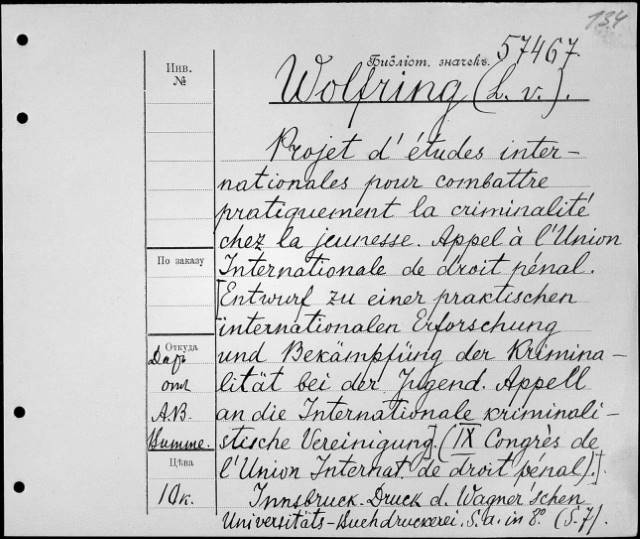 134
57467
Библіот. значекъ.
Wolfring (L. v.).
Инв.
№
Projet d'études inter-
nationales pour combattre
pratiquement la criminalité
chez la jeunesse. Appel à l'Union
Internationale de droit pénal.
[Entwurf zu einer praktischen
internationalen Erforschung
und Bekämpfüng der Krimina-
lität bei der Jugend. Appell
an die Internationale kriminali-
stische Vereinigung.] (IX Congrès de
l'Union Internat. de droit pénal).].
Innsbruck. Druck d. Wagner'schen
Universitäts-Buchdruckerei. S. a. in 8°. (S. 7).
По заказу
Откуда
Даръ
отъ
А.В.
Цѣна
10 к.